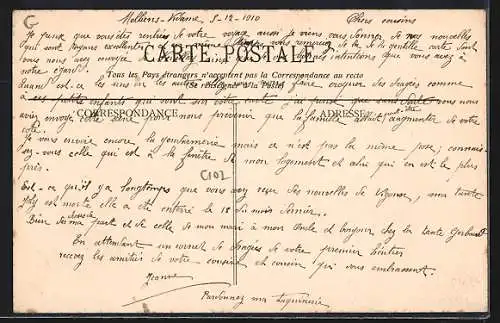 G
Molliens-Vidame 5-12-1910 Chers cousins
Je pense que vous des rentrés de votre voyage aussi je viens vous donner de nos nouvelles
qui sont toujours excellentes vous remercier de la gentille carte dont
CARTE POSTALE
vous nous avez envoyé intentions que vous avez à
notre égard.
Tous les Pays étrangers n'acceptent pas la Correspondance au recto
(Se renseigner à la Poste)
est-ce les uns ou les autres faire croquer des dragées comme
à ces petits enfants qui sont sur votre carte je pense que sans doute vous nous
avez envoyé cette carte pour nous prévenir que la famille allait augmenter de votre
côté.
CORRESPONDANCE ADRESSE
Je vous envoie encore la gendarmerie mais ce n'est pas la même pose ; connais-
sez-vous celle qui est à la fenêtre de mon logement et celui qui en est le plus
près.
C102
Est-ce qu'il y a longtemps que vous avez reçu des nouvelles de Vignon, ma tante
est morte elle a été enterré le 18 du mois dernier.
Bien de ma part et de celle de mon mari à mon oncle et chez la tante
En attendant un cornet de dragées de votre premier héritier
recevez les amitiés de votre cousine et cousin qui vous embrassent.
Jeanne
Pardonnez ma taquinerie